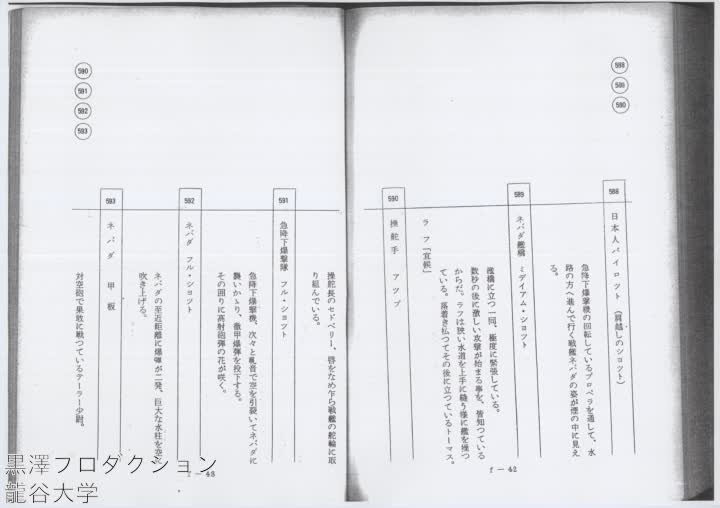 588
589
590
588
日本人パイロット (肩越しのショツト)
急降下爆撃機の回転しているプロペラを通して、水
路の方へ進んで行く戦艦ネバダの姿が煙の中に見え
る。
589
ネバダ艦橋 ミデイアム・ショツト
艦橋に立つ一同、極度に緊張している。
数秒の後に激しい攻撃が始まる事を、皆知つている
からだ。ラフは狭い水道を上手に縫う様に艦を操つ
ている。落着き払つてその後に立つているトーマス。
ラフ「宜候」
590
操舵手 アツプ
f－42
590
591
592
593
操舵長のセドベリー、唇をなめ乍ら戦艦の舵輪に取
り組んでいる。
591
急降下爆撃隊 フル・ショツト
急降下爆撃機、次々と轟音で空を引裂いてネバダに
襲いかゝり、徹甲爆弾を投下する。
その囲りに高射砲弾の花が咲く。
592
ネバダ フル・ショツト
ネバダの至近距離に爆弾が二発、巨大な水柱を空に
吹き上げる。
593
ネバダ 甲板
対空砲で果敢に戦つているテーラー少尉。
f－43
黒澤プロダクション
龍谷大学